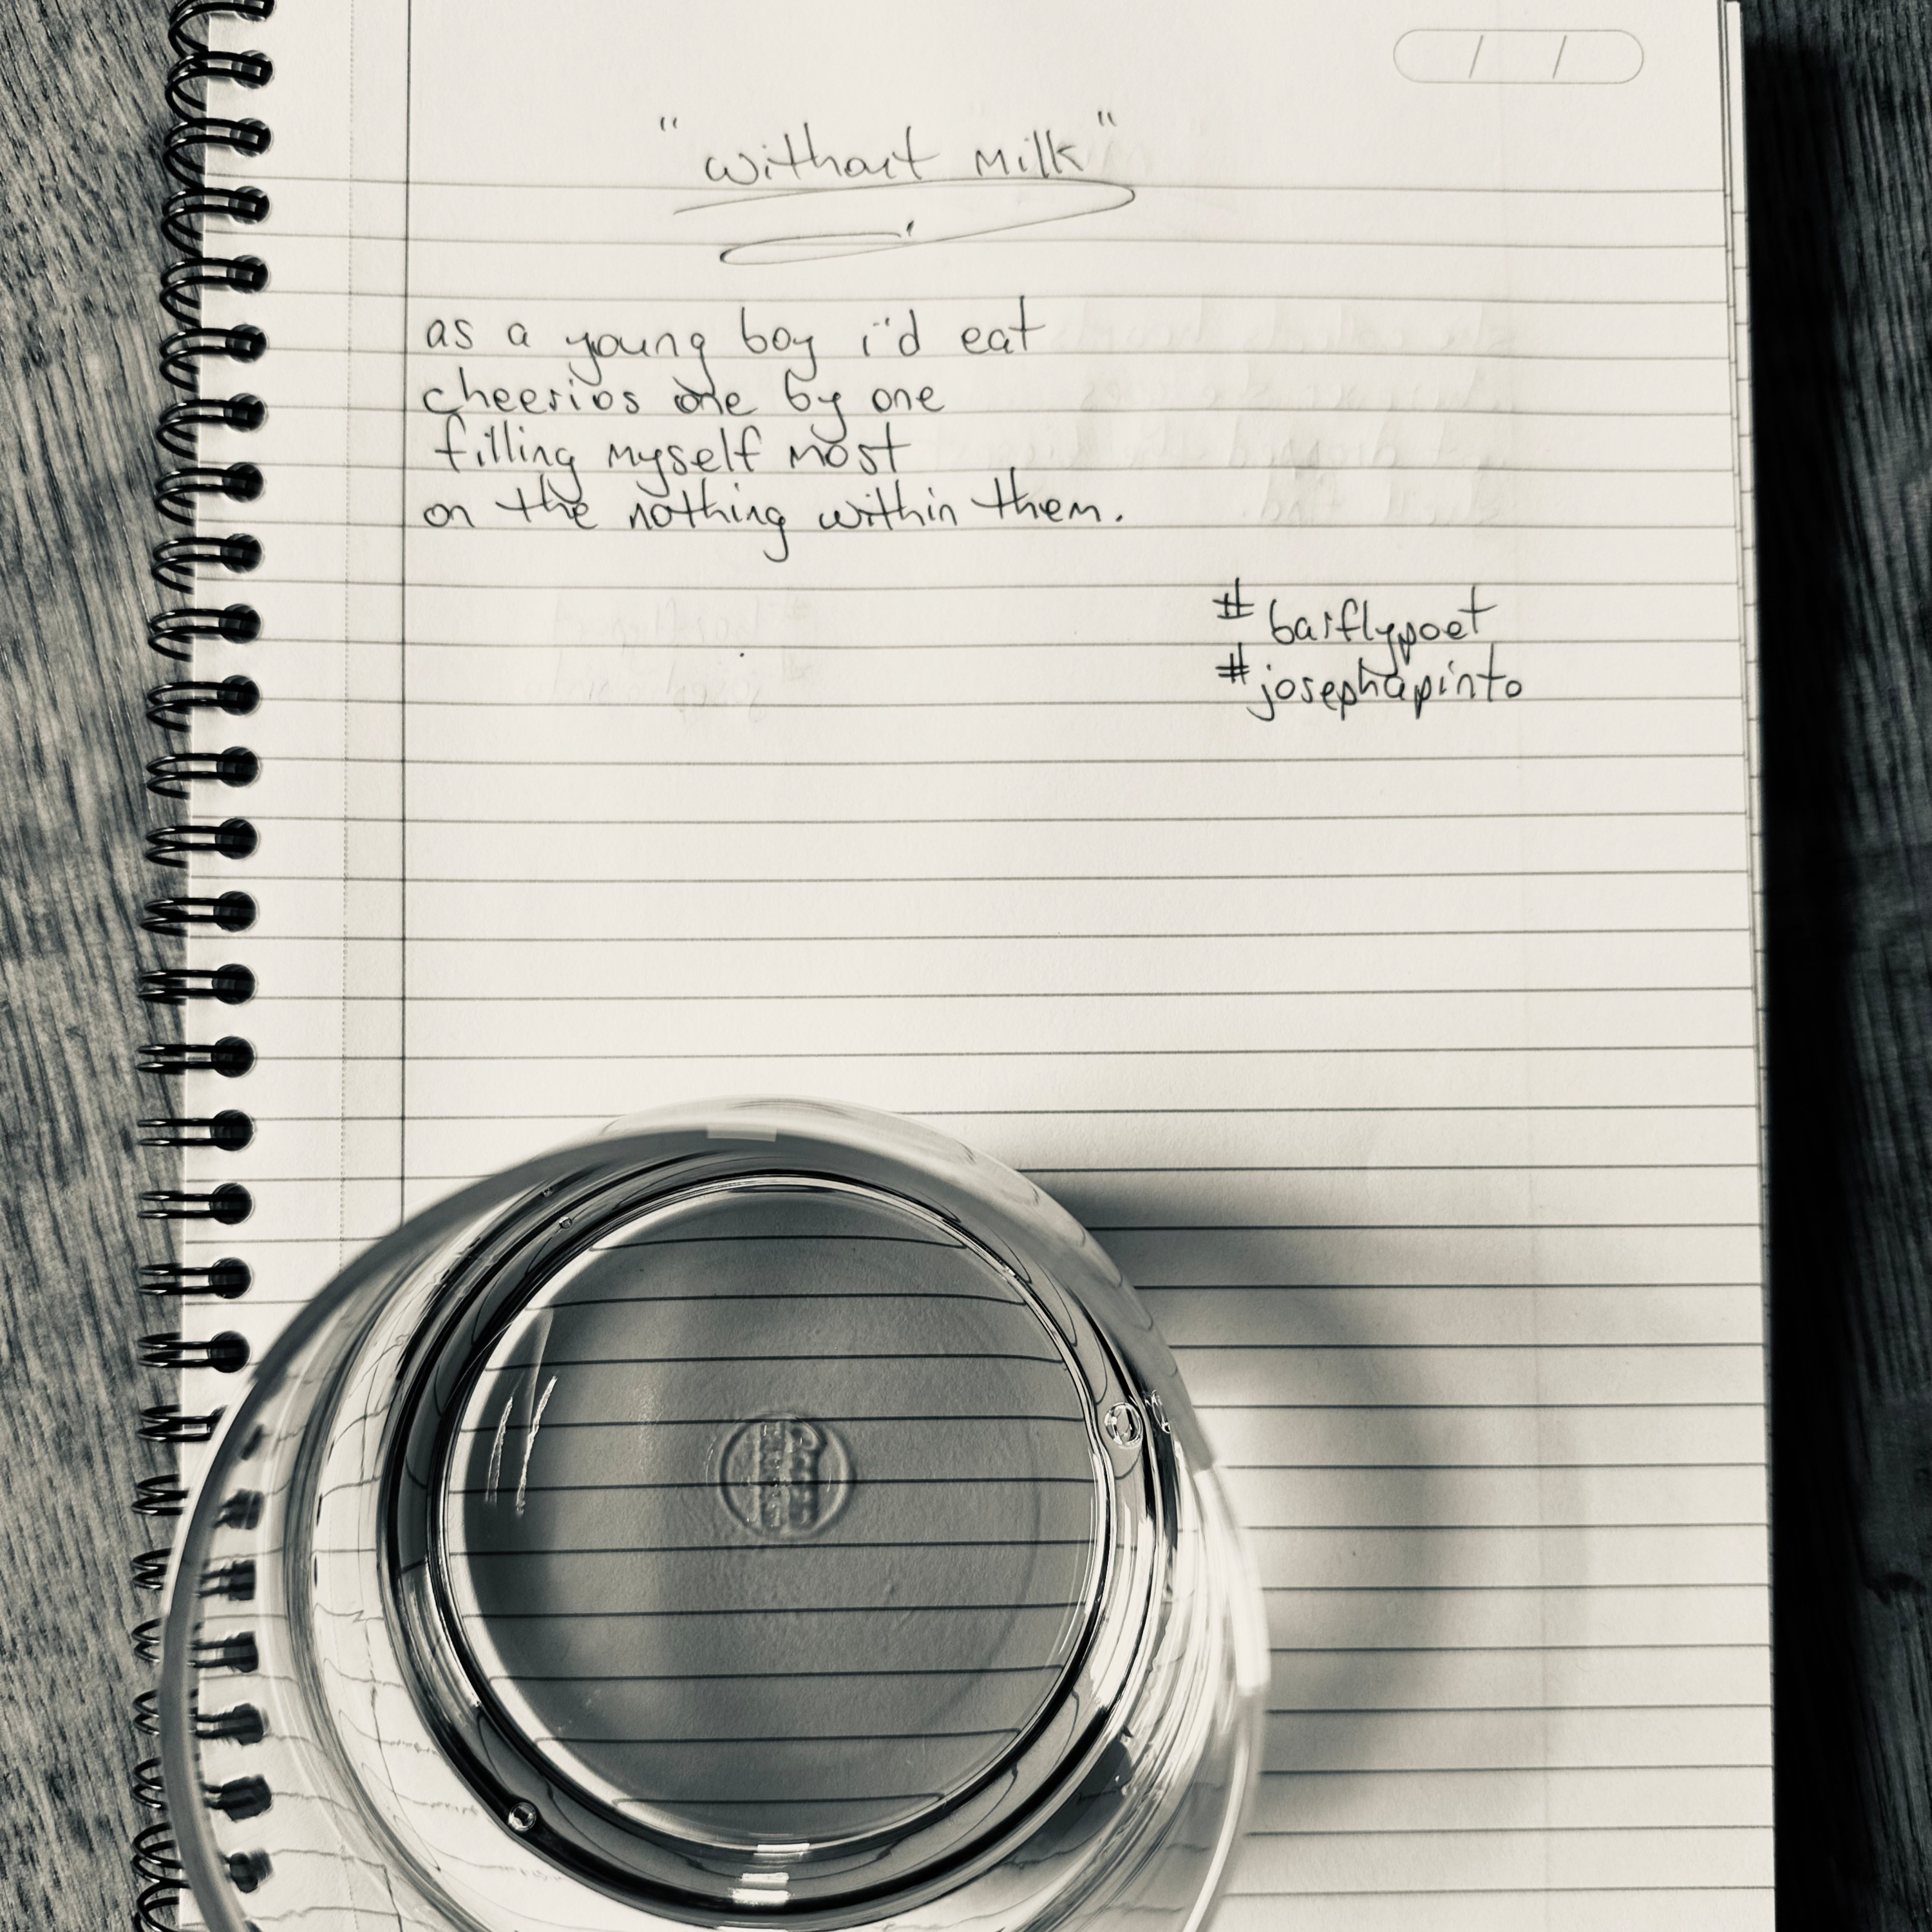 "without milk"
/ /
as a young boy i'd eat
cheerios one by one
filling myself most
on the nothing within them.
#barflypoet
#josephapinto